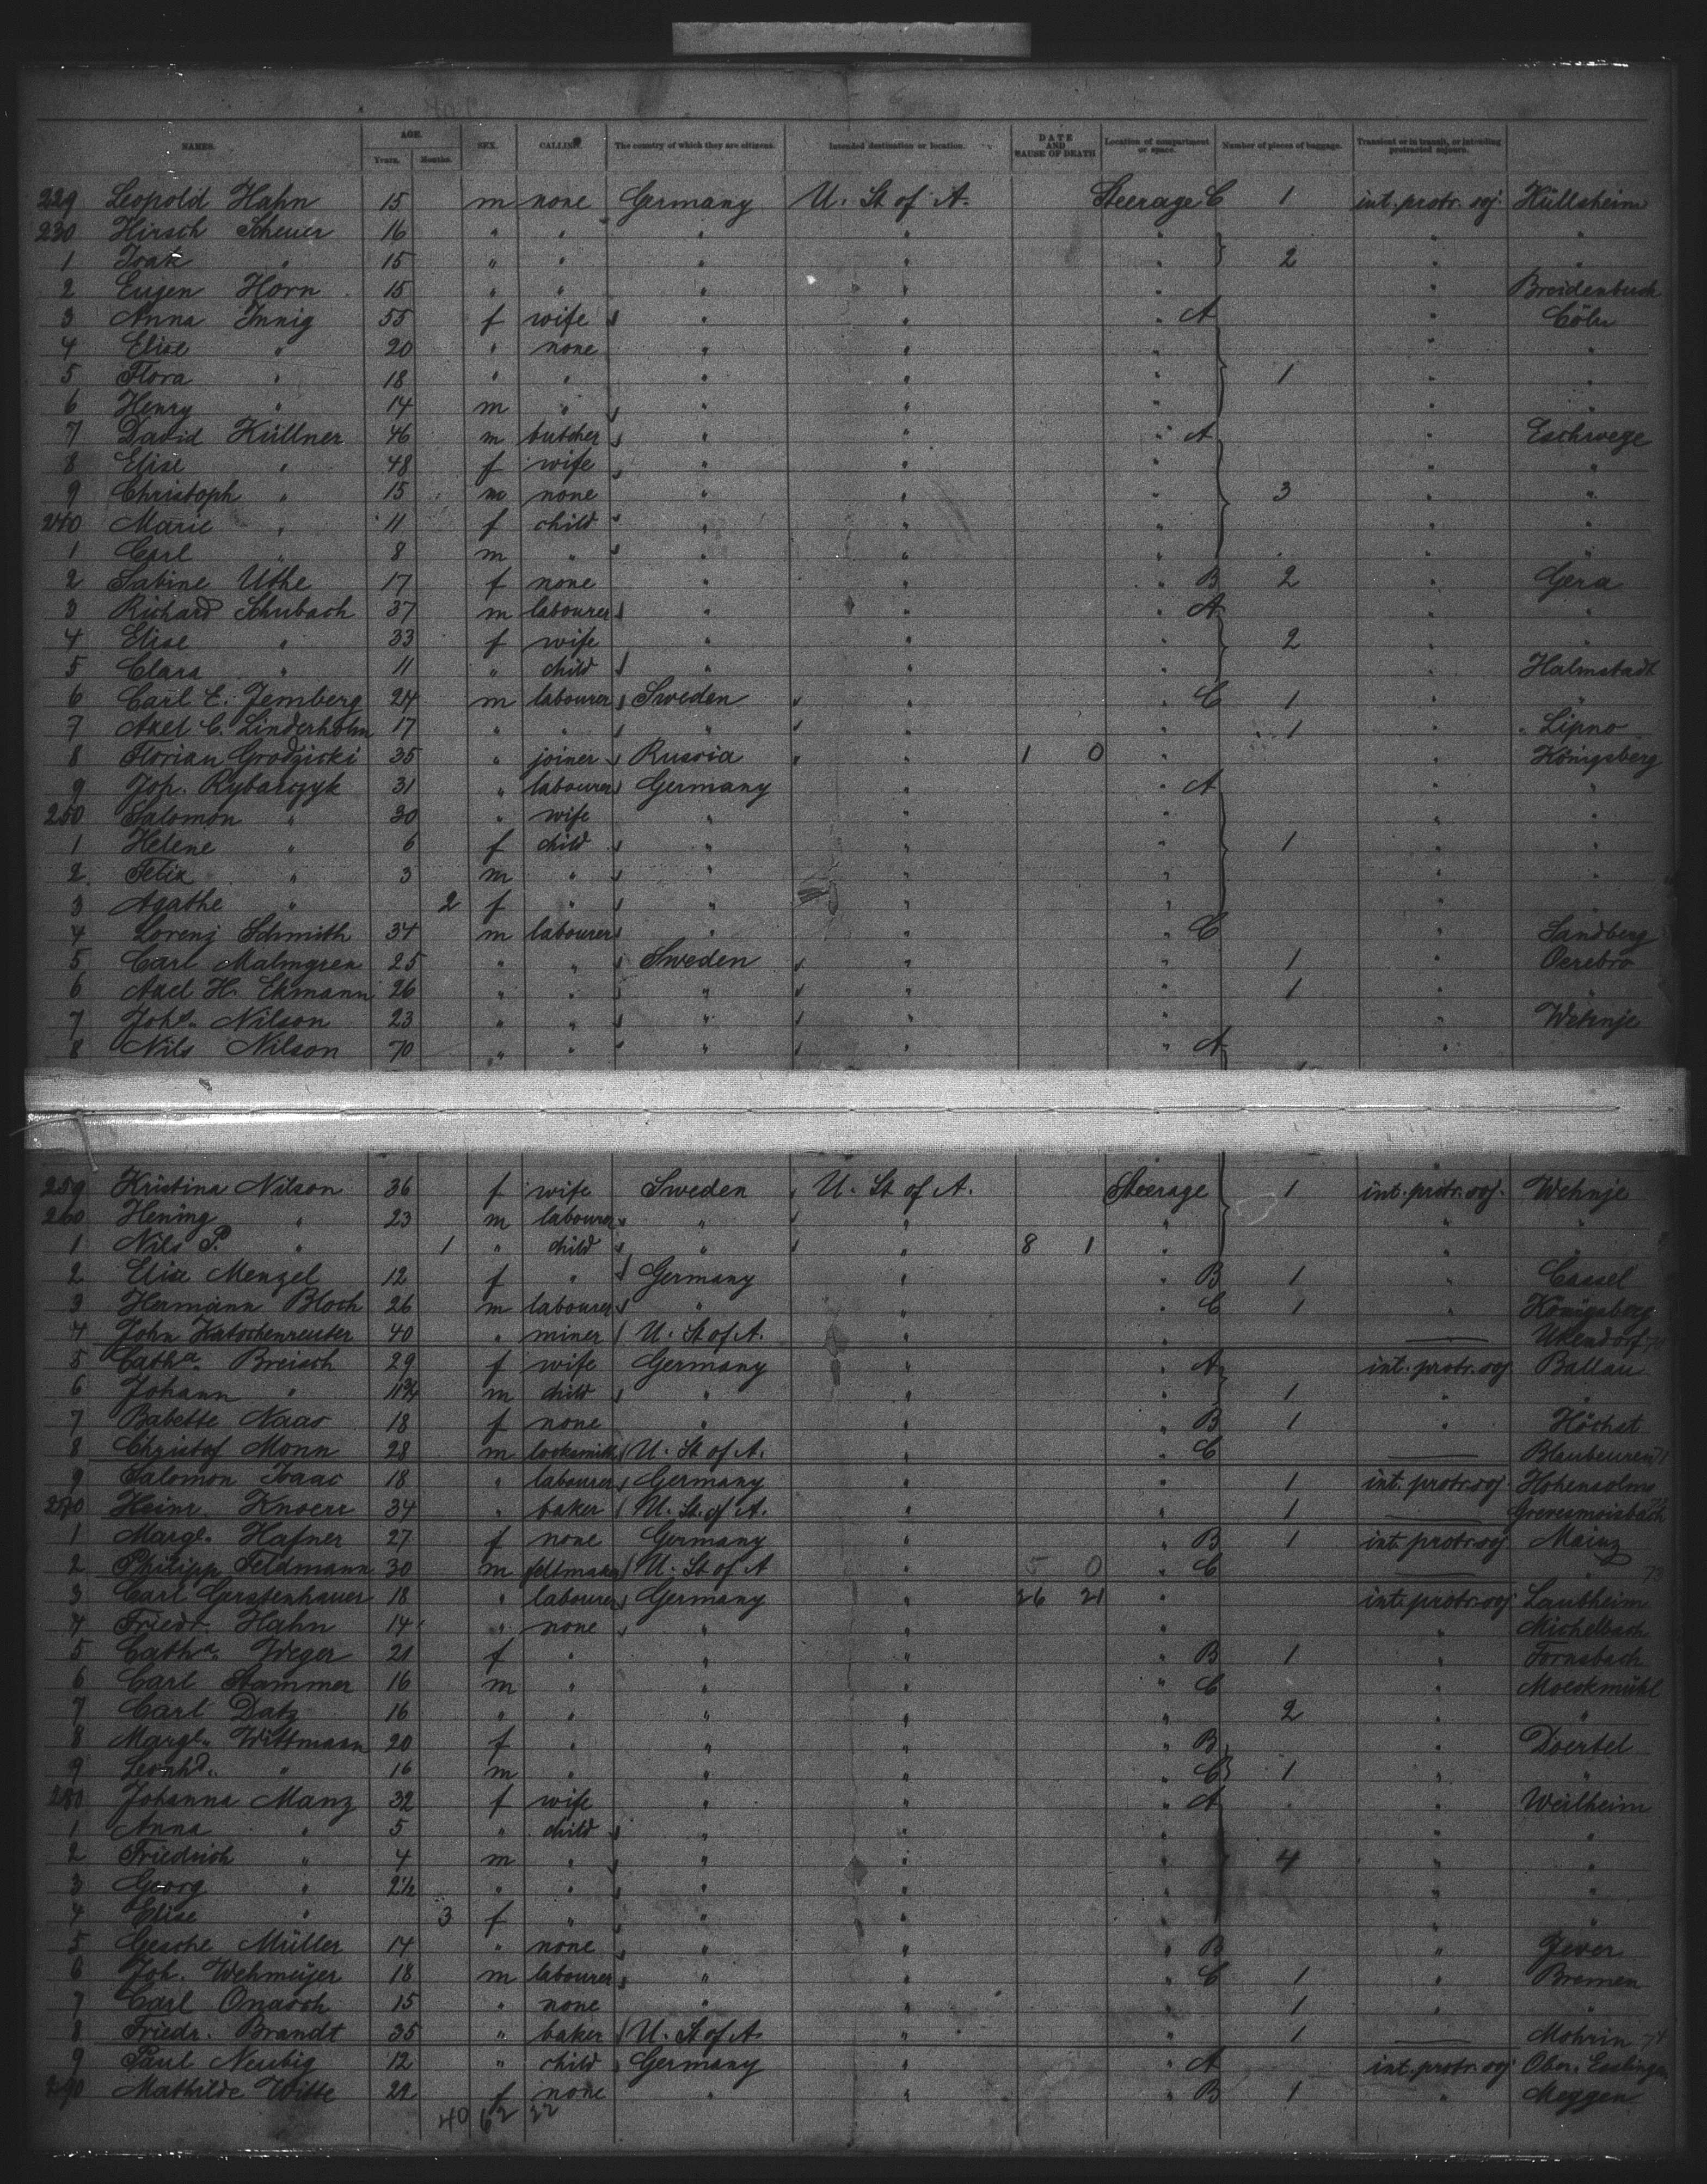 NAMES. AGE. Years. Months. SEX. CALLING. The country of which they are citizens. Intended destination or location. DATE AND CAUSE OF DEATH Location of compartment or space. Number of pieces of baggage. Transient or in transit, or intending protracted sojourn.
229 Leopold Hahn 15 m none Germany U. St of A. Steerage C 1 int. protr. soj. Hüllsheim
230 Hirsch Scheuer 16 " " " " " " "
1 Isak " 15 " " " " " 2 " "
2 Eugen Horn 15 " " " " " " Breidenbach
3 Anna Innig 55 f wife " " " A " Cöln
4 Elise " 20 " none " " " " "
5 Flora " 18 " " " " " 1 " "
6 Henry " 14 m " " " " " "
7 David Küllner 46 m butcher " " " A " Eschwege
8 Elise " 48 f wife " " " " "
9 Christoph " 15 m none " " " 3 " "
240 Marie " 11 f child " " " " "
1 Carl " 8 m " " " " " "
2 Sabine Uthe 17 f none " " " B 2 " Gera
3 Richard Schubach 37 m labourer " " " A " "
4 Elise " 33 f wife " " " 2 " "
5 Clara " 11 " child " " " " Halmstadt
6 Carl E. Jemberg 24 m labourer Sweden " " C 1 " "
7 Axel C. Linderholm 17 " " " " " 1 " Lipno
8 Florian Grodzicki 35 " joiner Russia " 1 0 " " Königsberg
9 Joh. Rybarczyk 31 " labourer Germany " " A " "
250 Salomon " 30 " wife " " " " "
1 Helene " 6 f child " " " 1 " "
2 Felix " 3 m " " " " " "
3 Agathe " 2 f " " " " " "
4 Lorenz Schmith 34 m labourer " " " C " Sandberg
5 Carl Malmgren 25 " " Sweden " " 1 " Oerebro
6 Axel H. Ekmann 26 " " " " " 1 " "
7 Johs. Nilson 23 " " " " " " Wehnje
8 Nils Nilson 70 " " " " " A "
259 Kristina Nilson 36 f wife Sweden U. St of A. Steerage 1 int. protr. soj. Wehnje
260 Hening " 23 m labourer " " " " "
1 Nils P. " 1 " child " " 8 1 " " "
2 Elise Menzel 12 f " Germany " " B 1 " Cassel
3 Hermann Bloch 26 m labourer " " " C 1 " Königsberg
4 John Katschenreuter 40 " miner U. St of A. " " — Ukendorf
5 Catha. Breisch 29 f wife Germany " " A int. protr. soj. Ballau
6 Johann " 11¾ m child " " " 1 " "
7 Babette Naas 18 f none " " " B 1 " Höchst
8 Christof Monn 28 m locksmith U. St of A. " " C — Blaubeuren 71
9 Salomon Isaac 18 " labourer Germany " " 1 int. protr. soj. Hohensolms
270 Heinr. Knoerr 34 " baker U. St. of A. " " 1 —
1 Margt. Hafner 27 f none Germany " " B 1 int. protr. soj. Mainz
2 Philipp Feldmann 30 m feltmaker U. St of A " 5 0 " C — " 73
3 Carl Gerstenhauer 18 " labourer Germany " 26 21 " int. protr. soj. Laubheim
4 Friedr. Hahn 14 " none " " " " Michelbach
5 Catha. Weger 21 f " " " " B 1 " Fornsbach
6 Carl Stammer 16 m " " " " C " Moeckmühl
7 Carl Datz 16 " " " " " 2 " "
8 Margt. Wittmann 20 f " " " " B " Doertel
9 Leonhd. " 16 m " " " " C 1 " "
280 Johanna Manz 32 f wife " " " A " Weilheim
1 Anna " 5 " child " " " " "
2 Friedrich " 4 m " " " " 4 " "
3 Georg " 2½ " " " " " " "
4 Elise " 3 f " " " " " "
5 Gesche Müller 14 " none " " " B " Jever
6 Joh. Wehmeijer 18 m labourer " " " C 1 " Bremen
7 Carl Onasch 15 " none " " " 1 " "
8 Friedr. Brandt 35 " baker U. St of A. " " 1 — Mohrin 74
9 Paul Neubig 12 " child Germany " " A int. protr. soj. Ober. Esslingen
290 Mathilde Witte 22 f none " " " B 1 " Meggen
40 62 22